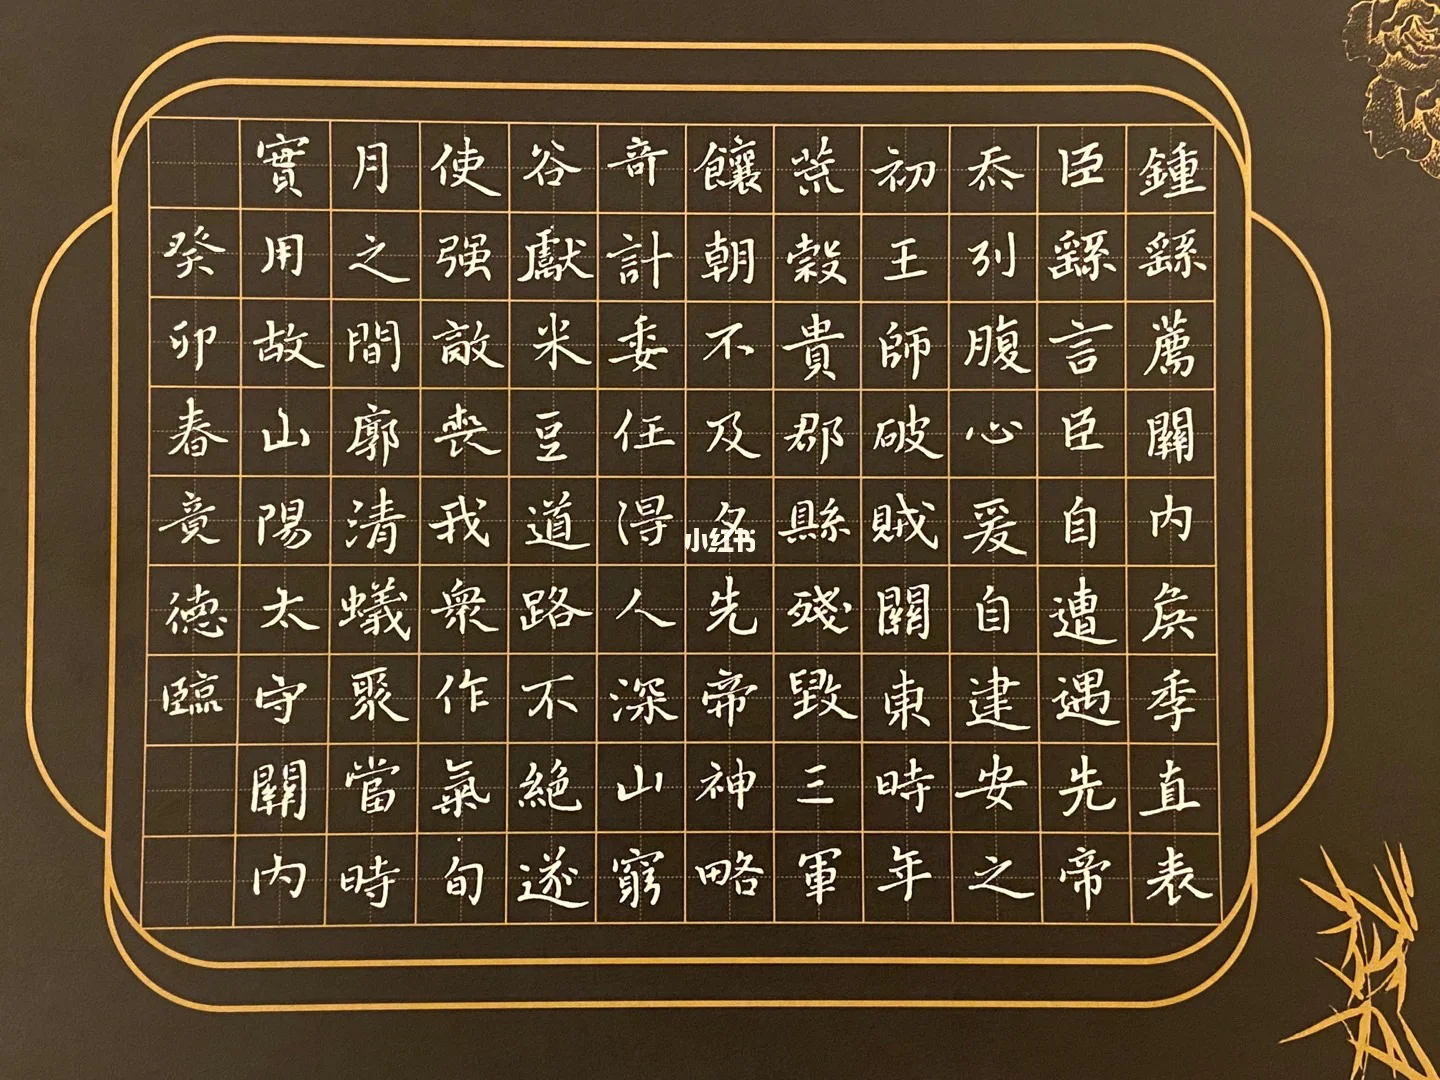 鍾繇薦關内侯季直表
臣繇言臣自遭遇先帝
忝列腹心爰自建安之
初王師破賊關東時年
荒穀貴郡縣殘毀三軍
饟朝不及夕先帝神略
奇計委任得人深山窮
谷獻米豆道路不絕遂
使强敵喪我衆作氣旬
月之間廓清蟻聚當時
實用故山陽太守關内
癸卯春竟德臨
小红书